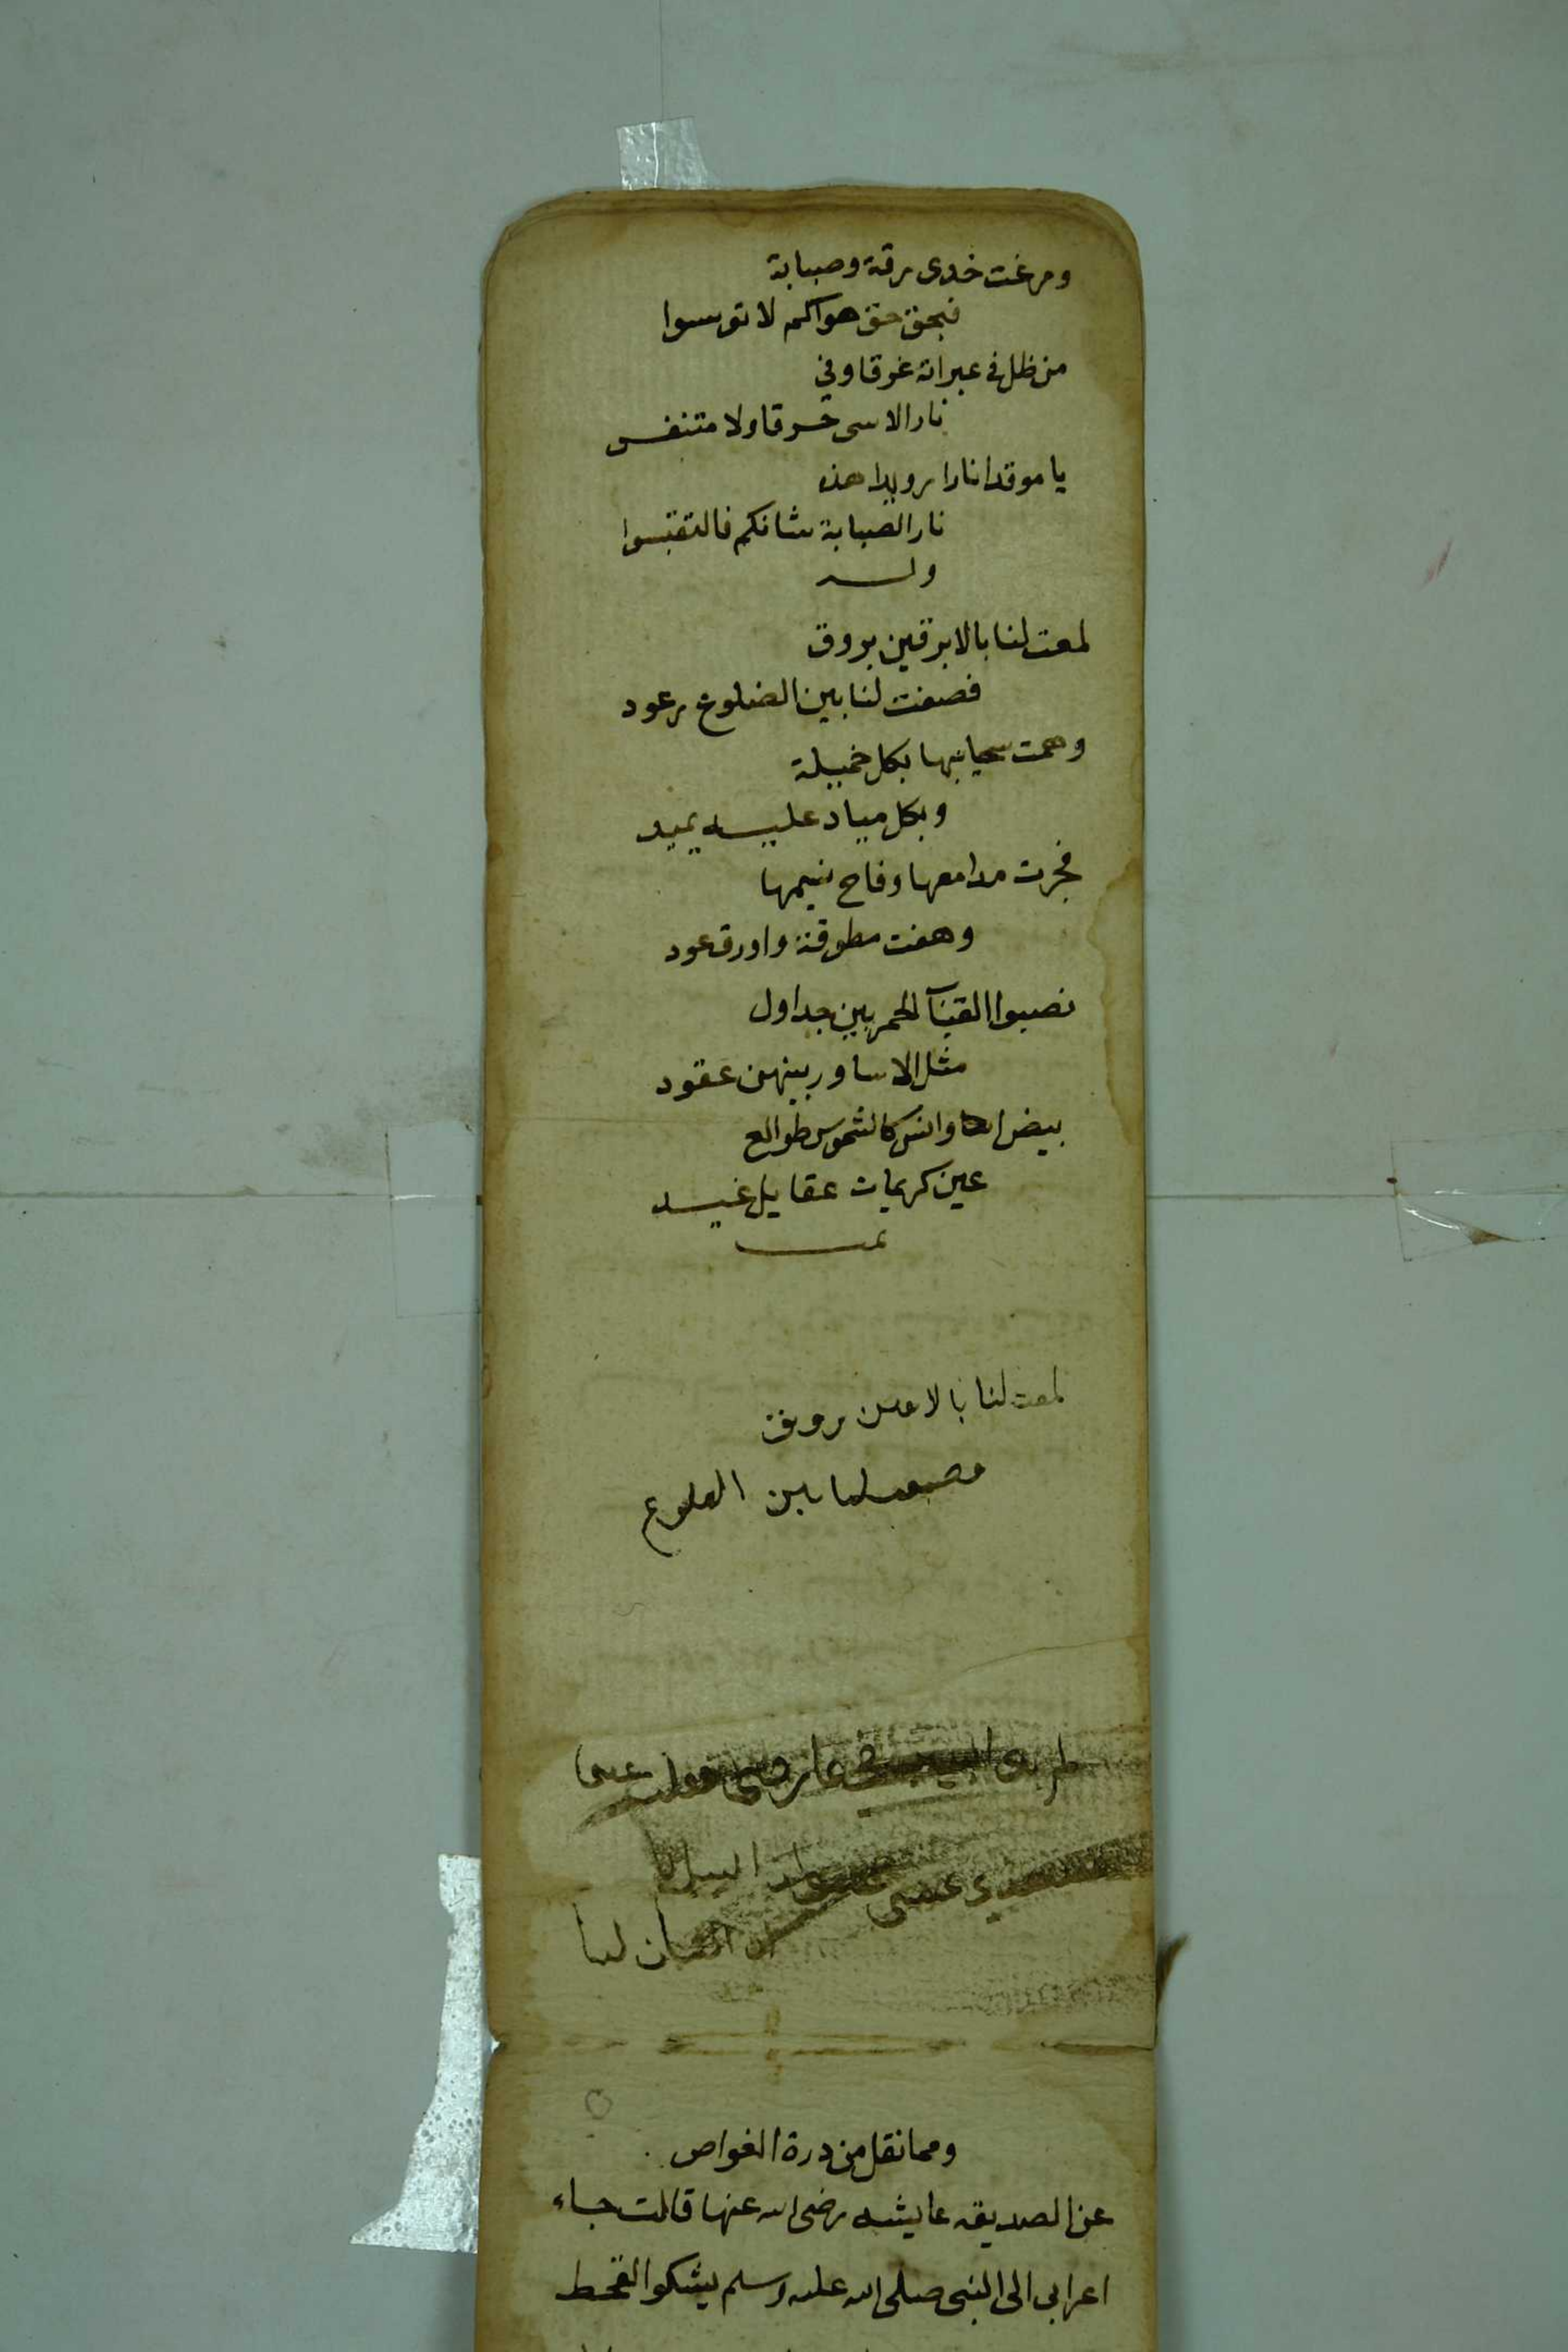 ومرغت خدى رقة وصبابة
فبحق حق هواكم لا تويسوا
من ظل في عبراته غرقا وفي
نار الاسى حرقا ولا متنفس
يا موقدا نارا رويدا هذه
نار الصبابة شانكم فالتقتبسوا
وله
لمعت لنا بالابرقين بروق
فصفت لنا بين الضلوع رعود
وهمت سحايبها بكل خميلة
وبكل مياد عليه يميد
فجرت مدامعها وفاح نسيمها
وهفت مطوقة واورق عود
نصبوا القباب الحمر بين جداول
مثل الاساور بينهن عقود
بيض اوانس كالشموس طوالع
عين كريمات عقايل غيد
تمت
لمعت لنا بالا بروق
لنا بين الضلوع
ومما نقل من درة الغواص
عن الصديقه عايشه رضى الله عنها قالت جاء
اعرابى الى النبى صلى الله عليه وسلم يشكوا القحط